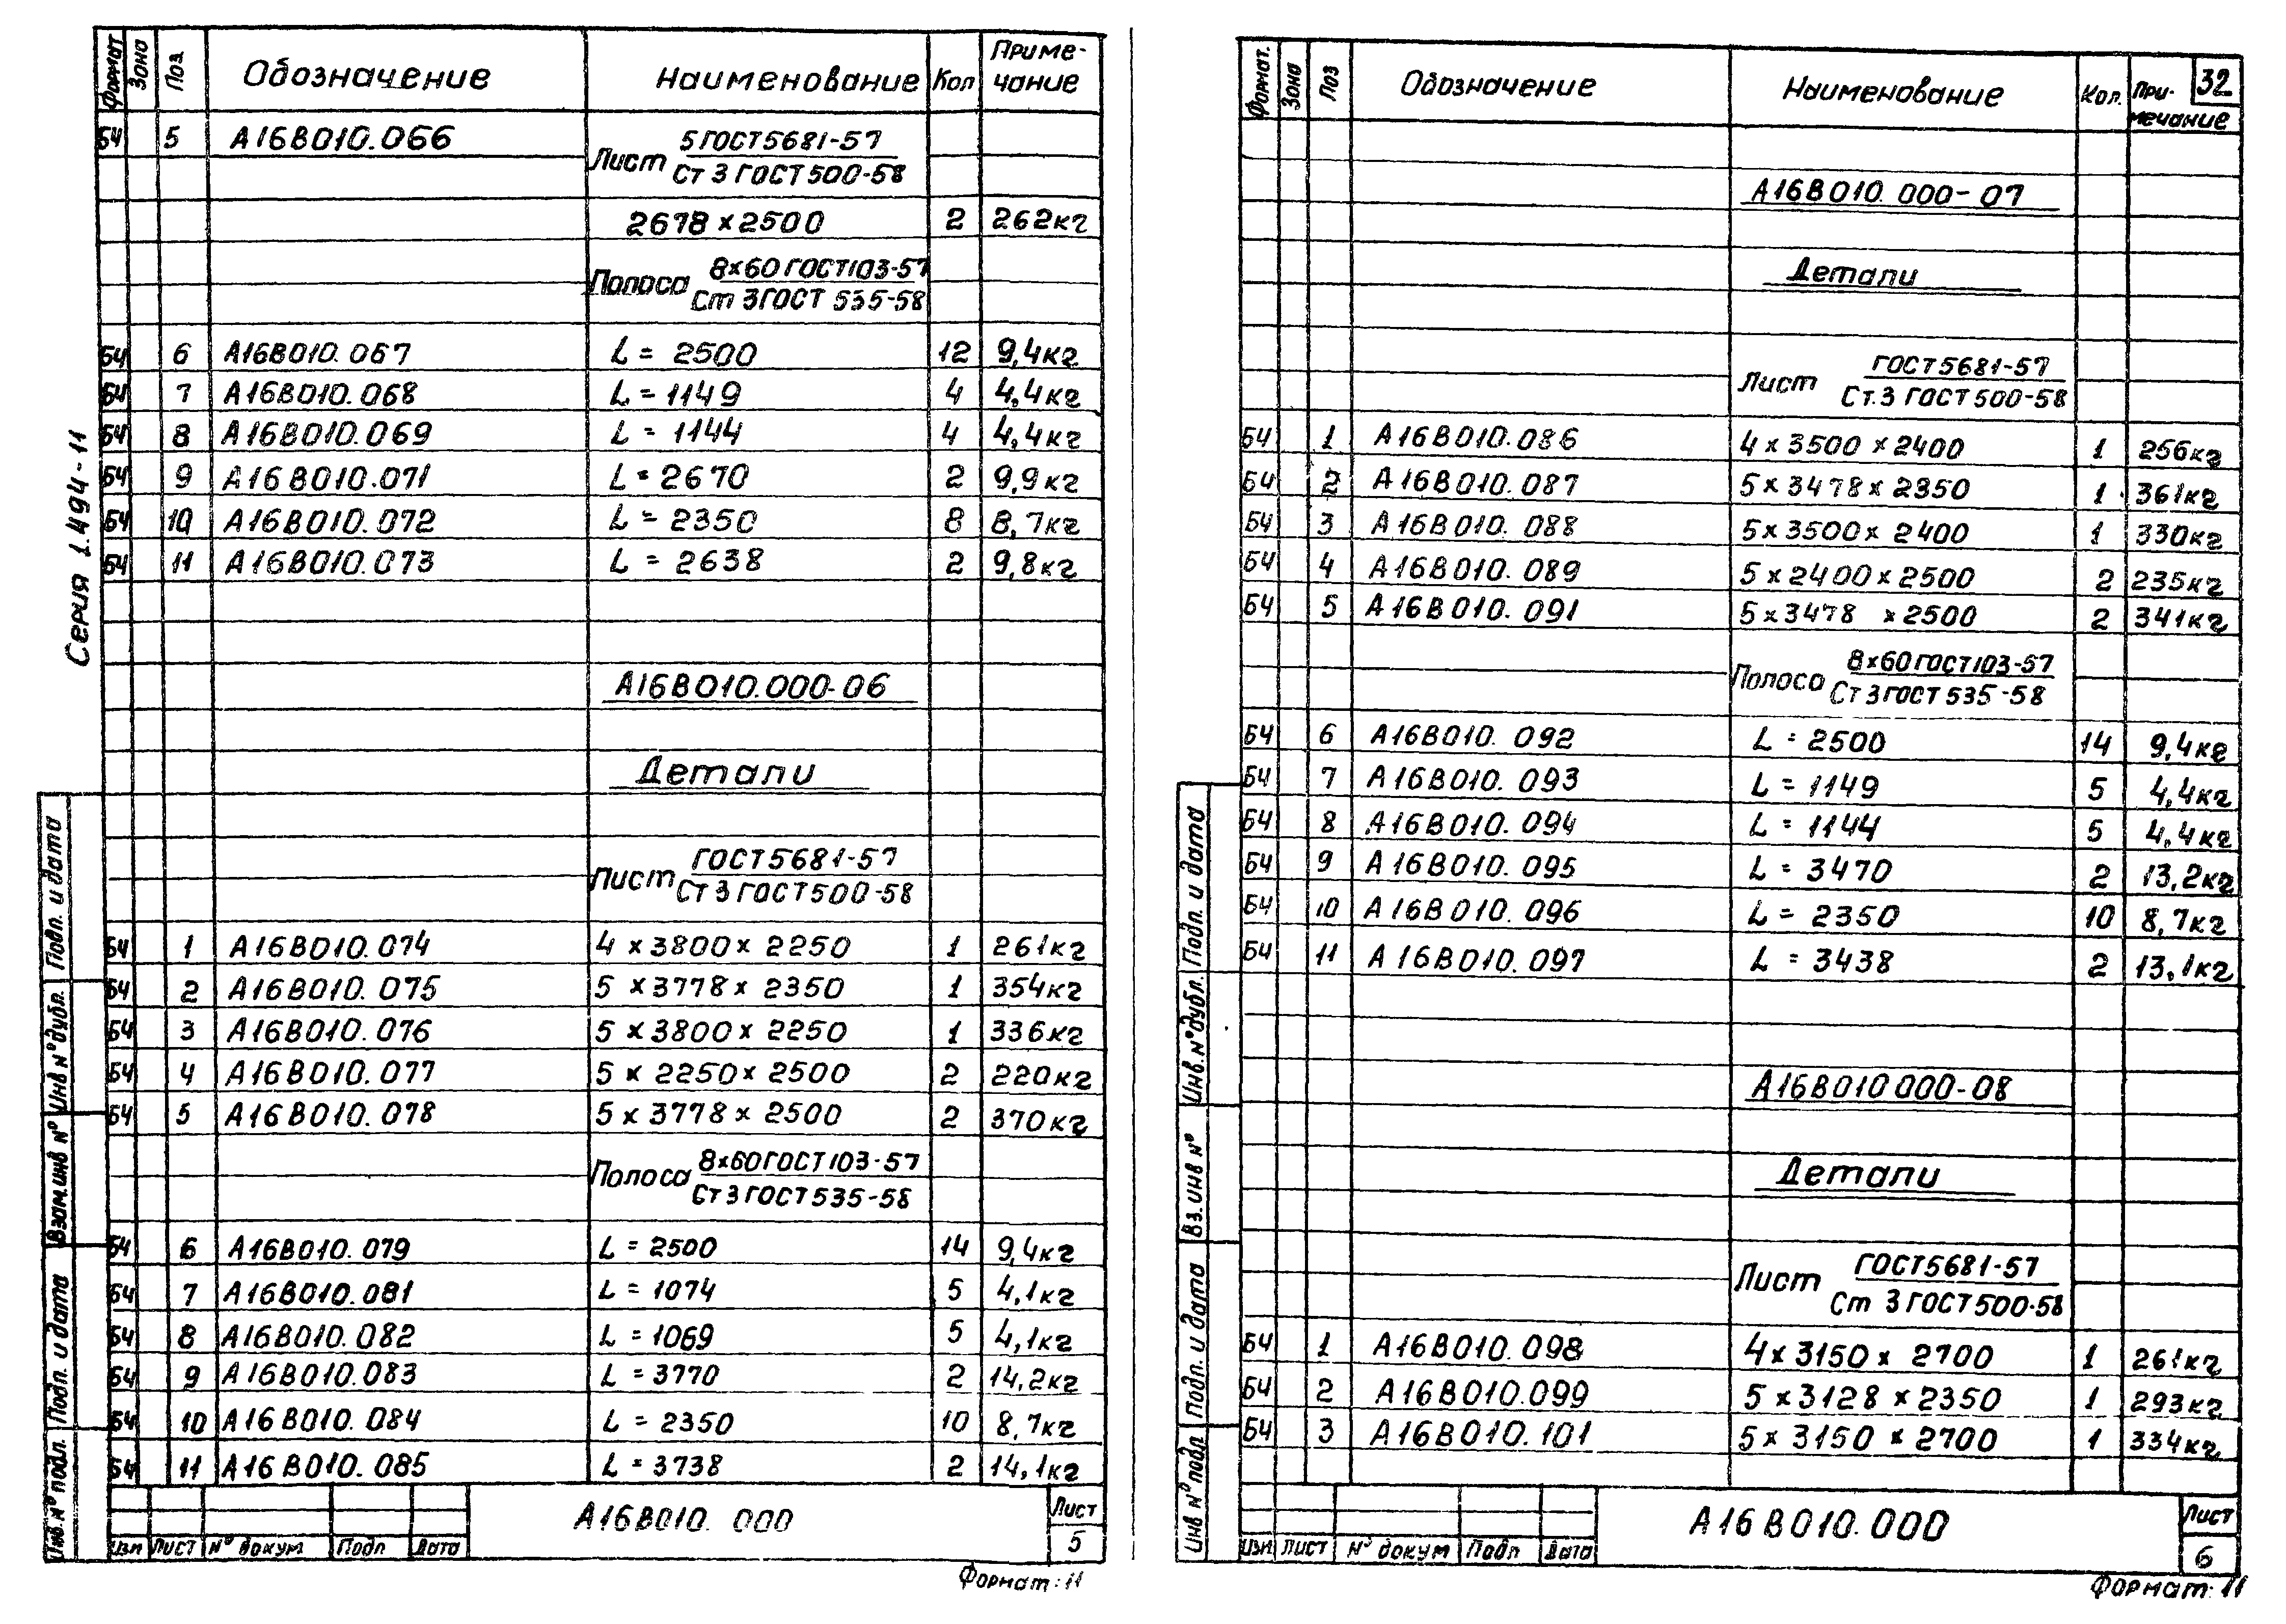 Формат Зона Поз. Обозначение Наименование Кол Приме-
чание
БЧ 5 А16В010.066 Лист 5 ГОСТ 5681-57
Ст 3 ГОСТ 500-58
2678 × 2500 2 262кг
Полоса 8×60 ГОСТ 103-57
Ст 3 ГОСТ 535-58
БЧ 6 А16В010.067 L = 2500 12 9,4кг
БЧ 7 А16В010.068 L = 1149 4 4,4кг
БЧ 8 А16В010.069 L = 1144 4 4,4кг
БЧ 9 А16В010.071 L = 2670 2 9,9кг
БЧ 10 А16В010.072 L = 2350 8 8,7кг
БЧ 11 А16В010.073 L = 2638 2 9,8кг
А16В010.000-06
Детали
Лист ГОСТ 5681-57
Ст 3 ГОСТ 500-58
БЧ 1 А16В010.074 4 × 3800 × 2250 1 261кг
БЧ 2 А16В010.075 5 × 3778 × 2350 1 354кг
БЧ 3 А16В010.076 5 × 3800 × 2250 1 336кг
БЧ 4 А16В010.077 5 × 2250 × 2500 2 220кг
БЧ 5 А16В010.078 5 × 3778 × 2500 2 370кг
Полоса 8×60 ГОСТ 103-57
Ст 3 ГОСТ 535-58
БЧ 6 А16В010.079 L = 2500 14 9,4кг
БЧ 7 А16В010.081 L = 1074 5 4,1кг
БЧ 8 А16В010.082 L = 1069 5 4,1кг
БЧ 9 А16В010.083 L = 3770 2 14,2кг
БЧ 10 А16В010.084 L = 2350 10 8,7кг
БЧ 11 А16В010.085 L = 3738 2 14,1кг
А16В010.000
Лист
5
Изм Лист № докум Подп Дата
Формат: 11
Серия 1.494-11
Подп. и дата
Инв № дубл.
Взам инв №
Подп. и дата
Инв. № подл.
Формат. Зона Поз Обозначение Наименование Кол. При-
мечание
32
А16В010.000-07
Детали
Лист ГОСТ 5681-57
Ст.3 ГОСТ 500-58
БЧ 1 А16В010.086 4 × 3500 × 2400 1 256кг
БЧ 2 А16В010.087 5 × 3478 × 2350 1 361кг
БЧ 3 А16В010.088 5 × 3500 × 2400 1 330кг
БЧ 4 А16В010.089 5 × 2400 × 2500 2 235кг
БЧ 5 А16В010.091 5 × 3478 × 2500 2 341кг
Полоса 8×60 ГОСТ 103-57
Ст 3 ГОСТ 535-58
БЧ 6 А16В010.092 L = 2500 14 9,4кг
БЧ 7 А16В010.093 L = 1149 5 4,4кг
БЧ 8 А16В010.094 L = 1144 5 4,4кг
БЧ 9 А16В010.095 L = 3470 2 13,2кг
БЧ 10 А16В010.096 L = 2350 10 8,7кг
БЧ 11 А16В010.097 L = 3438 2 13,1кг
А16В010 000-08
Детали
Лист ГОСТ 5681-57
Ст 3 ГОСТ 500-58
БЧ 1 А16В010.098 4 × 3150 × 2700 1 261кг
БЧ 2 А16В010.099 5 × 3128 × 2350 1 293кг
БЧ 3 А16В010.101 5 × 3150 × 2700 1 334кг
А16В010.000
Лист
6
Изм Лист № докум Подп Дата
Формат: 11
Подп. и дата
Инв. № дубл.
Вз. инв №
Подп. и дата
Инв № подл